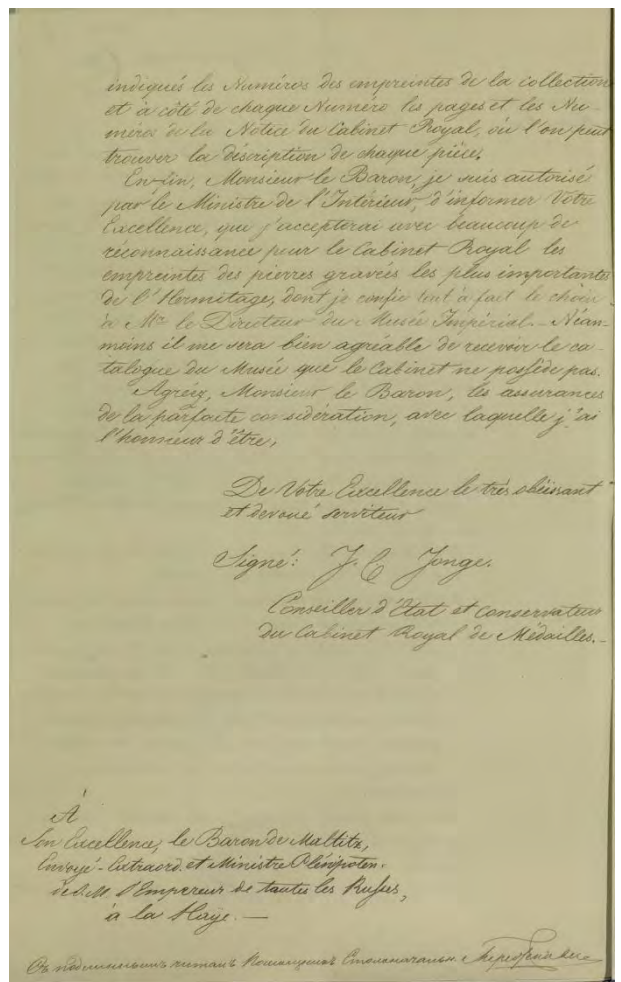 indiqués les Numéros des empreintes de la collection
et à côté de chaque Numéro les pages et les Nu-
méros de la Notice du Cabinet Royal, où l'on peut
trouver la déscription de chaque pièce.
Enfin, Monsieur le Baron, je suis autorisé
par le Ministre de l'Intérieur, d'informer Votre
Excellence, que j'accepterai avec beaucoup de
réconnaissance pour le Cabinet Royal les
empreintes des pierres gravées les plus importantes
de l'Hermitage, dont je confie tout à fait le choix
à Mr. le Directeur du Musée Impérial. Néan-
moins il me sera bien agréable de recevoir le ca-
talogue du Musée que le Cabinet ne possède pas.
Agréez, Monsieur le Baron, les assurances
de la parfaite considération, avec laquelle j'ai
l'honneur d'être,
De Votre Excellence le très obéissant
et devoué serviteur
Signé: J. C. Jonge.
Conseiller d'Etat et conservateur
du Cabinet Royal de Médailles.-
À
Son Excellence, le Baron de Maltitz,
Envoyé-Extraord. et Ministre Plénipoten.
de S. M. l'Empereur de toutes les Russes,
à la Haye. —
Съ подлиннымъ читалъ Помощникъ Столоначальн.